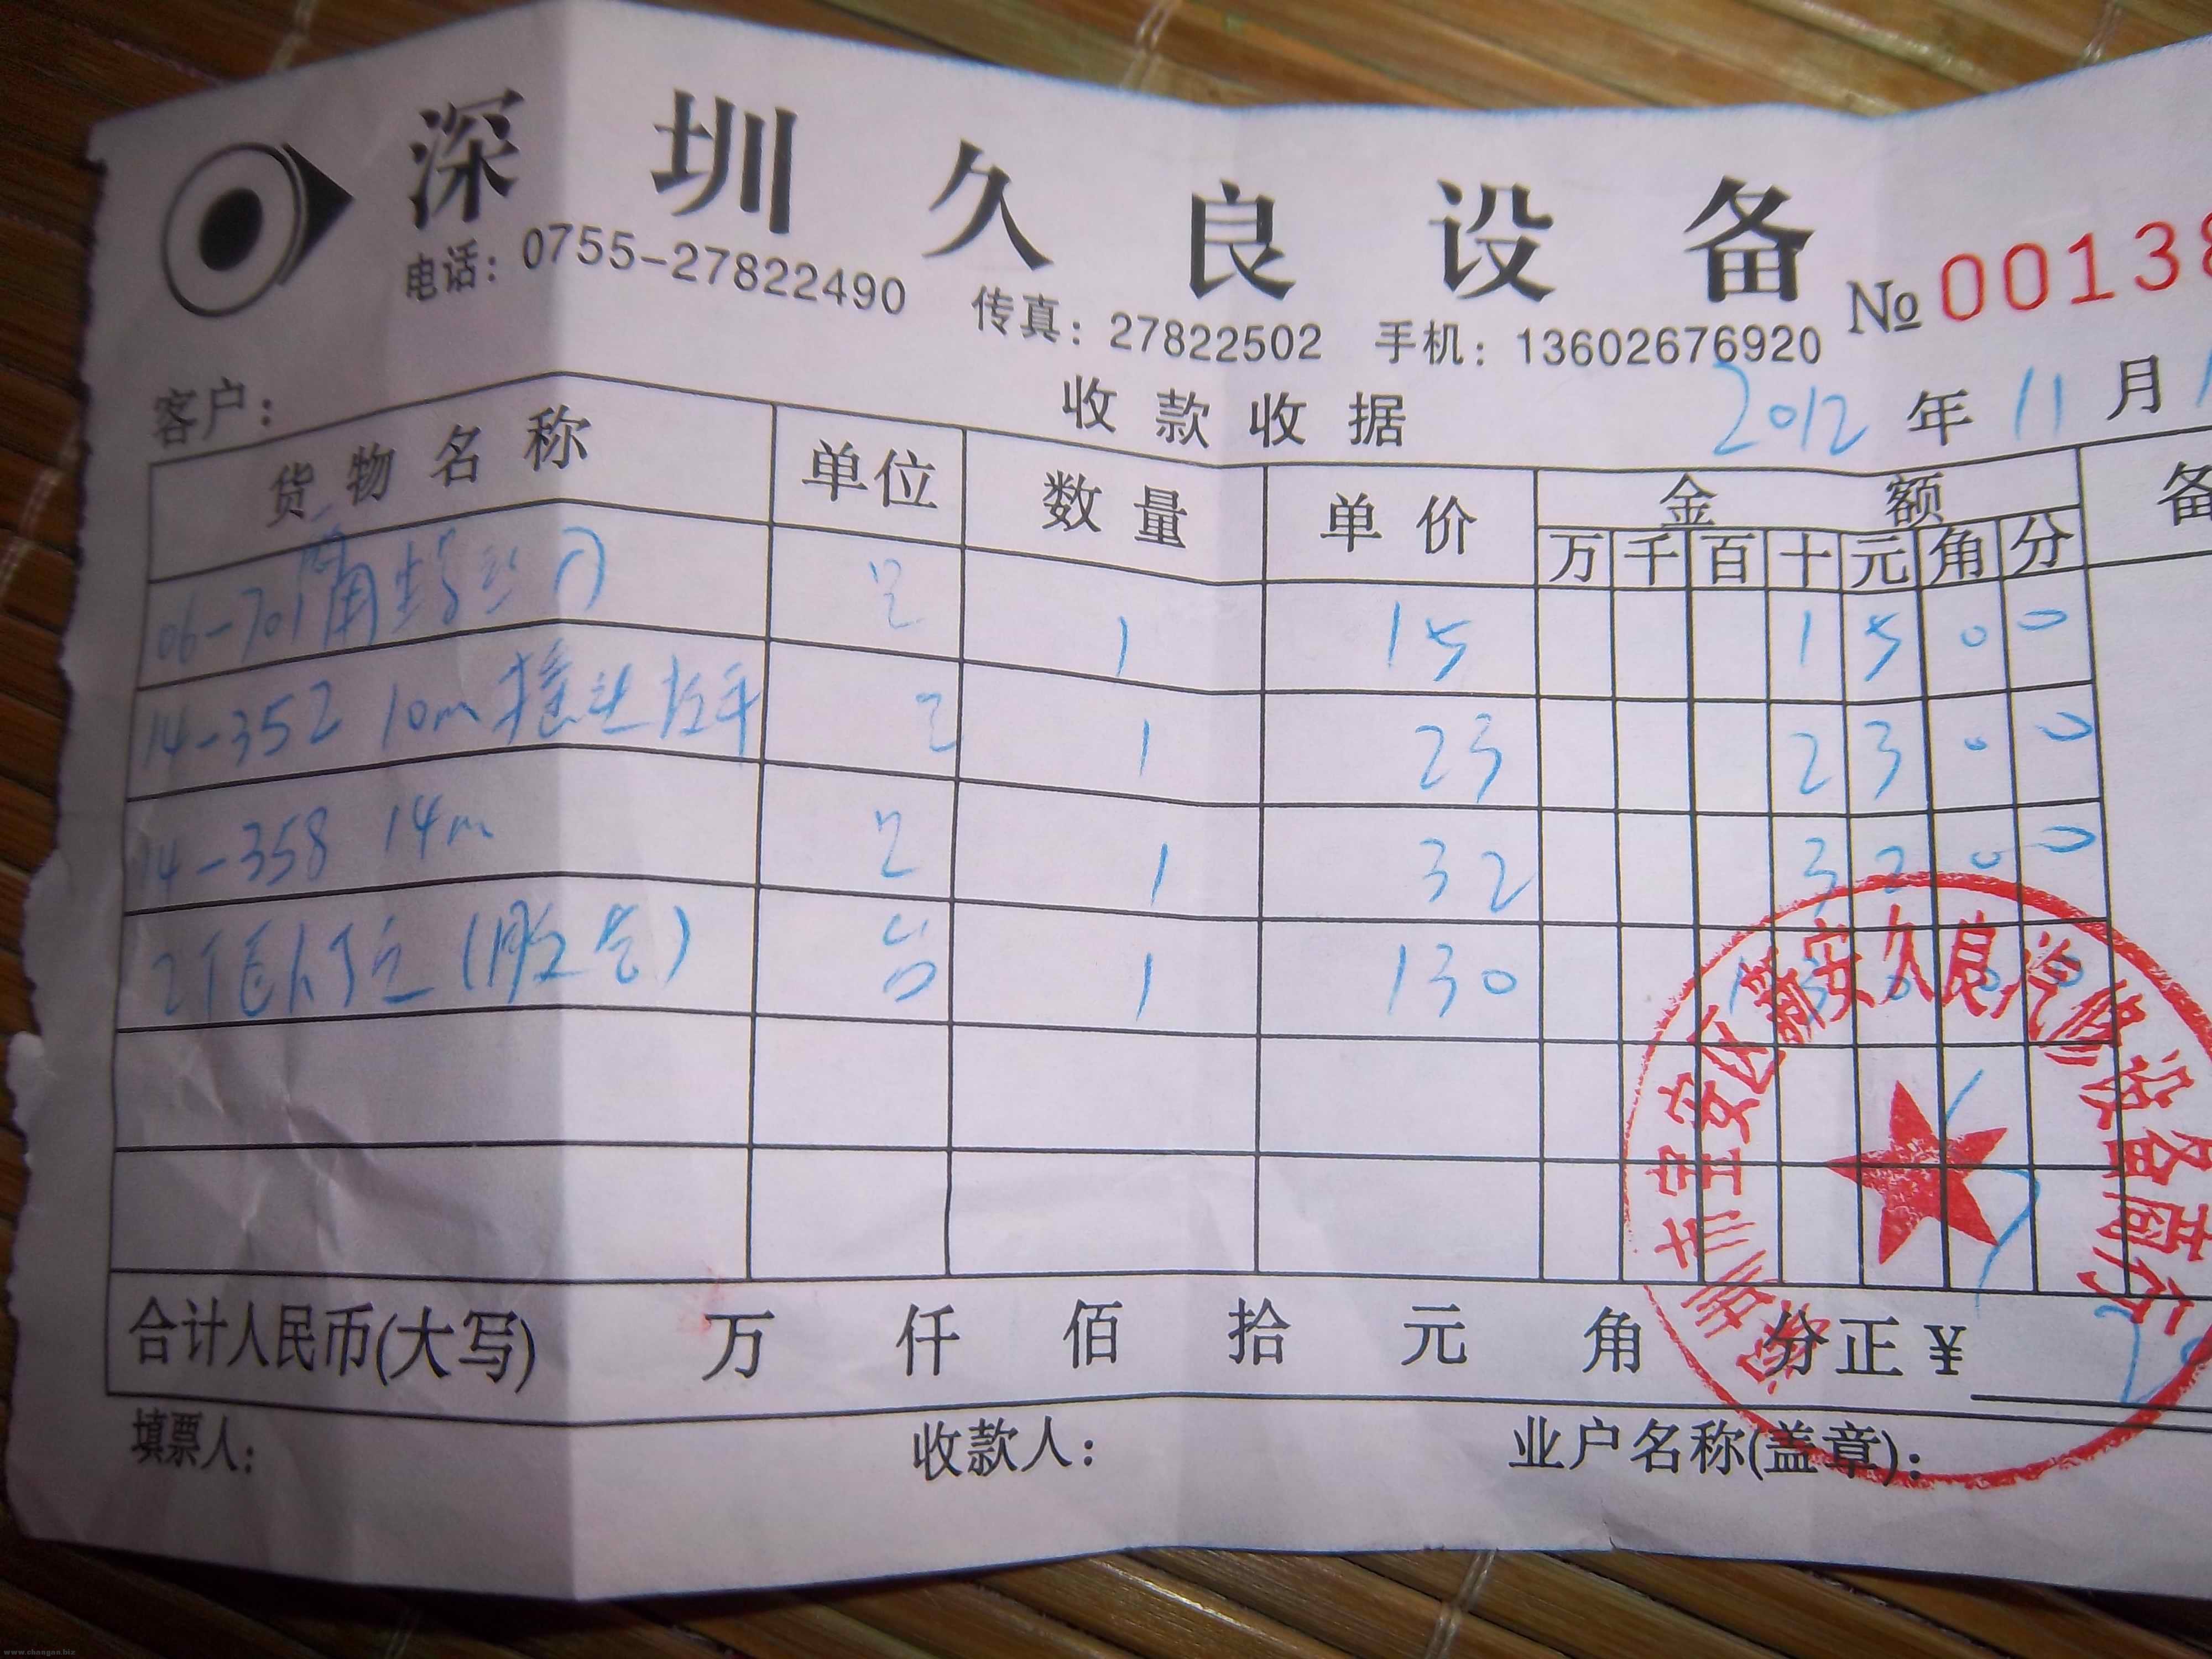 深圳久良设备
电话：0755-27822490 传真：27822502 手机：13602676920
№ 00138
客户： 收款收据 2012年11月1
货物名称 单位 数量 单价 金额 备
万 千 百 十 元 角 分
06-701 角 丝刀 1 15 1 5 0 0
14-352 10m 接头扳手 1 23 2 3 0 0
14-358 14m 1 32 3 2 0 0
2 台 1 130 1 3 0 0 0
合计人民币(大写) 万 仟 佰 拾 元 角 分正 ￥ 20
填票人： 收款人： 业户名称(盖章)：
深圳市宝安区新安久良汽修设备商行
www.changan.biz